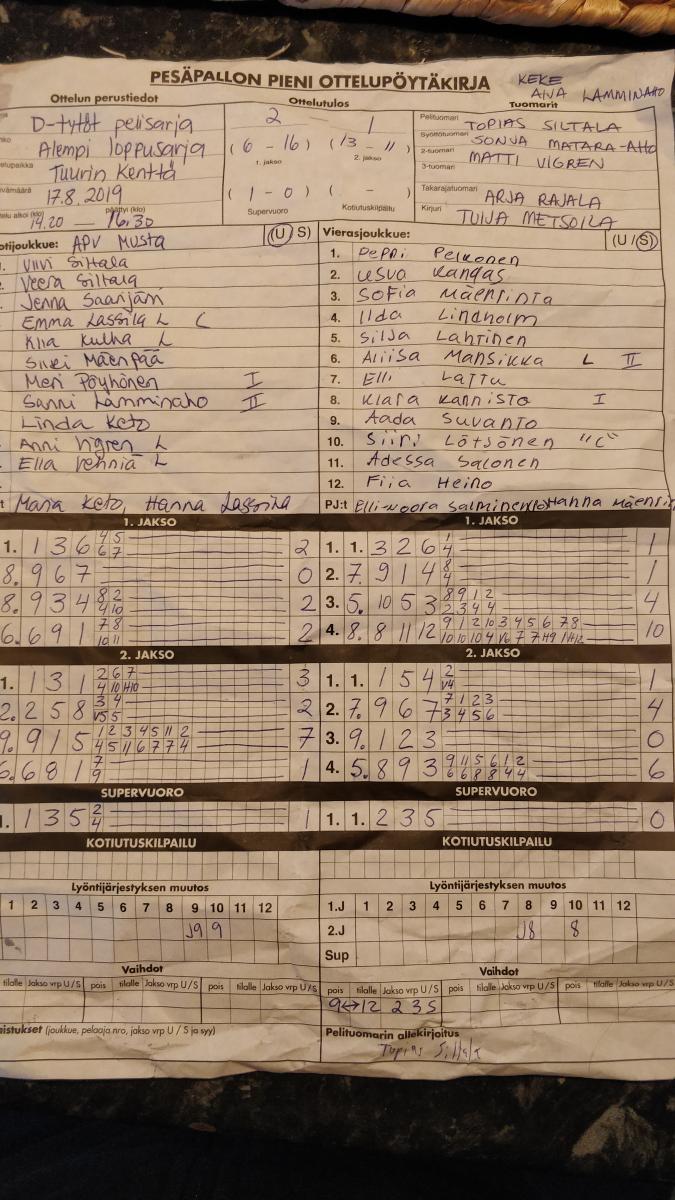 PESÄPALLON PIENI OTTELUPÖYTÄKIRJA
KEKE
AIVA LAMMINAHO
Ottelun perustiedot Ottelutulos Tuomarit
D-tytöt pelisarja
Alempi loppusarja
Tuurin Kenttä
17.8.2019
päättyi (klo)
14.20 — 16.30
2 1
(6 - 16) (13 - 11)
1. jakso 2. jakso
(1 - 0) ( - )
Supervuoro Kotiutuskilpailu
Pelituomari TOPIAS SILTALA
Syöttötuomari SONJA MATARA-AHO
2-tuomari MATTI VIGREN
3-tuomari
Takarajatuomari ARJA RAJALA
Kirjuri TUIJA METSOILA
otijoukkue: APV Musta (U S)
Viivi Siltala
Veera Siltala
Jenna Saarijäri
Emma Lassila L C
Kiia Kulha L
Silvi Mäenpää
Meri Pöyhönen I
Sanni Lamminaho II
Linda Keto
Anni Vigren L
Ella Vehniä L
Maria Keto, Hanna Lassila
Vierasjoukkue: (U / S)
1. Peppi Pelkonen
2. Usva Kangas
3. Sofia Mäensivta
4. Ilda Lindholm
5. Silja Lahtinen
6. Aliisa Mansikka L II
7. Elli Lattu
8. Klara Kannisto I
9. Aada Suvanto
10. Siiri Lötjönen "C"
11. Adessa Salonen
12. Fiia Heino
PJ:t Elli-Noora Salminen Hanna
1. JAKSO 1. JAKSO
1. 1 3 6 4 5 2
6 7
8. 9 6 7 0
8. 9 3 4 8 2 2
4 10
6. 6 9 1 7 8 2
10 11
1. 1. 3 2 6 1 1
4
2. 7. 9 1 4 8 1
4
3. 5. 10 5 3 8 9 1 2 4
2 3 4 4
4. 8. 8 11 12 9 1 2 10 3 4 5 6 7 8 10
10 10 10 4 V6 7 7 H9
2. JAKSO 2. JAKSO
1. 1 3 1 2 6 7 3
4 10 H10
2. 2 5 8 3 4 2
V5 5
9. 9 1 5 1 2 3 4 5 11 2 7
4 5 11 6 7 7 4
6. 6 8 1 7 1
9
1. 1. 1 5 4 2 1
V4
2. 7. 9 6 7 7 1 2 3 4
3 4 5 6
3. 9. 1 2 3 0
4. 5. 8 9 3 9 11 5 6 1 2 6
6 6 8 8 4 4
SUPERVUORO SUPERVUORO
1. 1 3 5 2 1
4
1. 1. 2 3 5 0
KOTIUTUSKILPAILU KOTIUTUSKILPAILU
Lyöntijärjestyksen muutos Lyöntijärjestyksen muutos
1 2 3 4 5 6 7 8 9 10 11 12
J9 9
1.J 1 2 3 4 5 6 7 8 9 10 11 12
2.J J8 8
Sup
Vaihdot Vaihdot
tilalle Jakso vrp U/S pois tilalle Jakso vrp U/S pois tilalle Jakso vrp U/S
pois tilalle Jakso vrp U/S pois tilalle Jakso vrp U/S pois tilalle Jakso vrp U/S
9↔12 2 3 S
istukset (joukkue, pelaaja nro, jakso vrp U / S ja syy)
Pelituomarin allekirjoitus
Topias Siltala